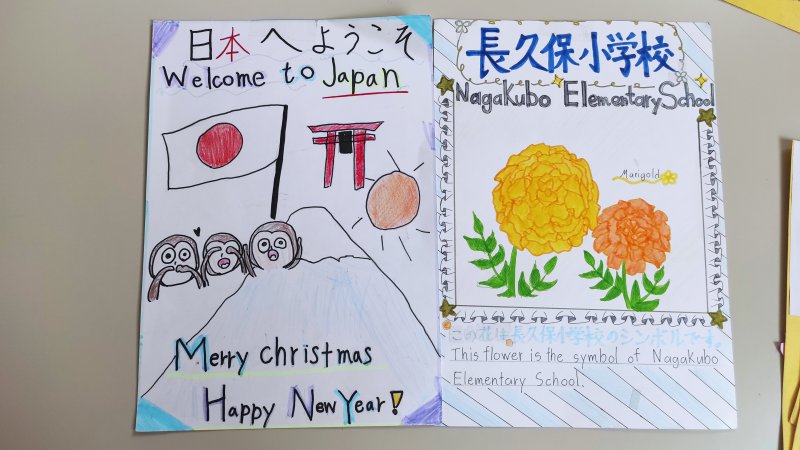 日本へようこそ
Welcome to Japan
Merry christmas
Happy New Year!
長久保小学校
Nagakubo Elementary School
Marigold
この花は長久保小学校のシンボルです。
This flower is the symbol of Nagakubo
Elementary School.